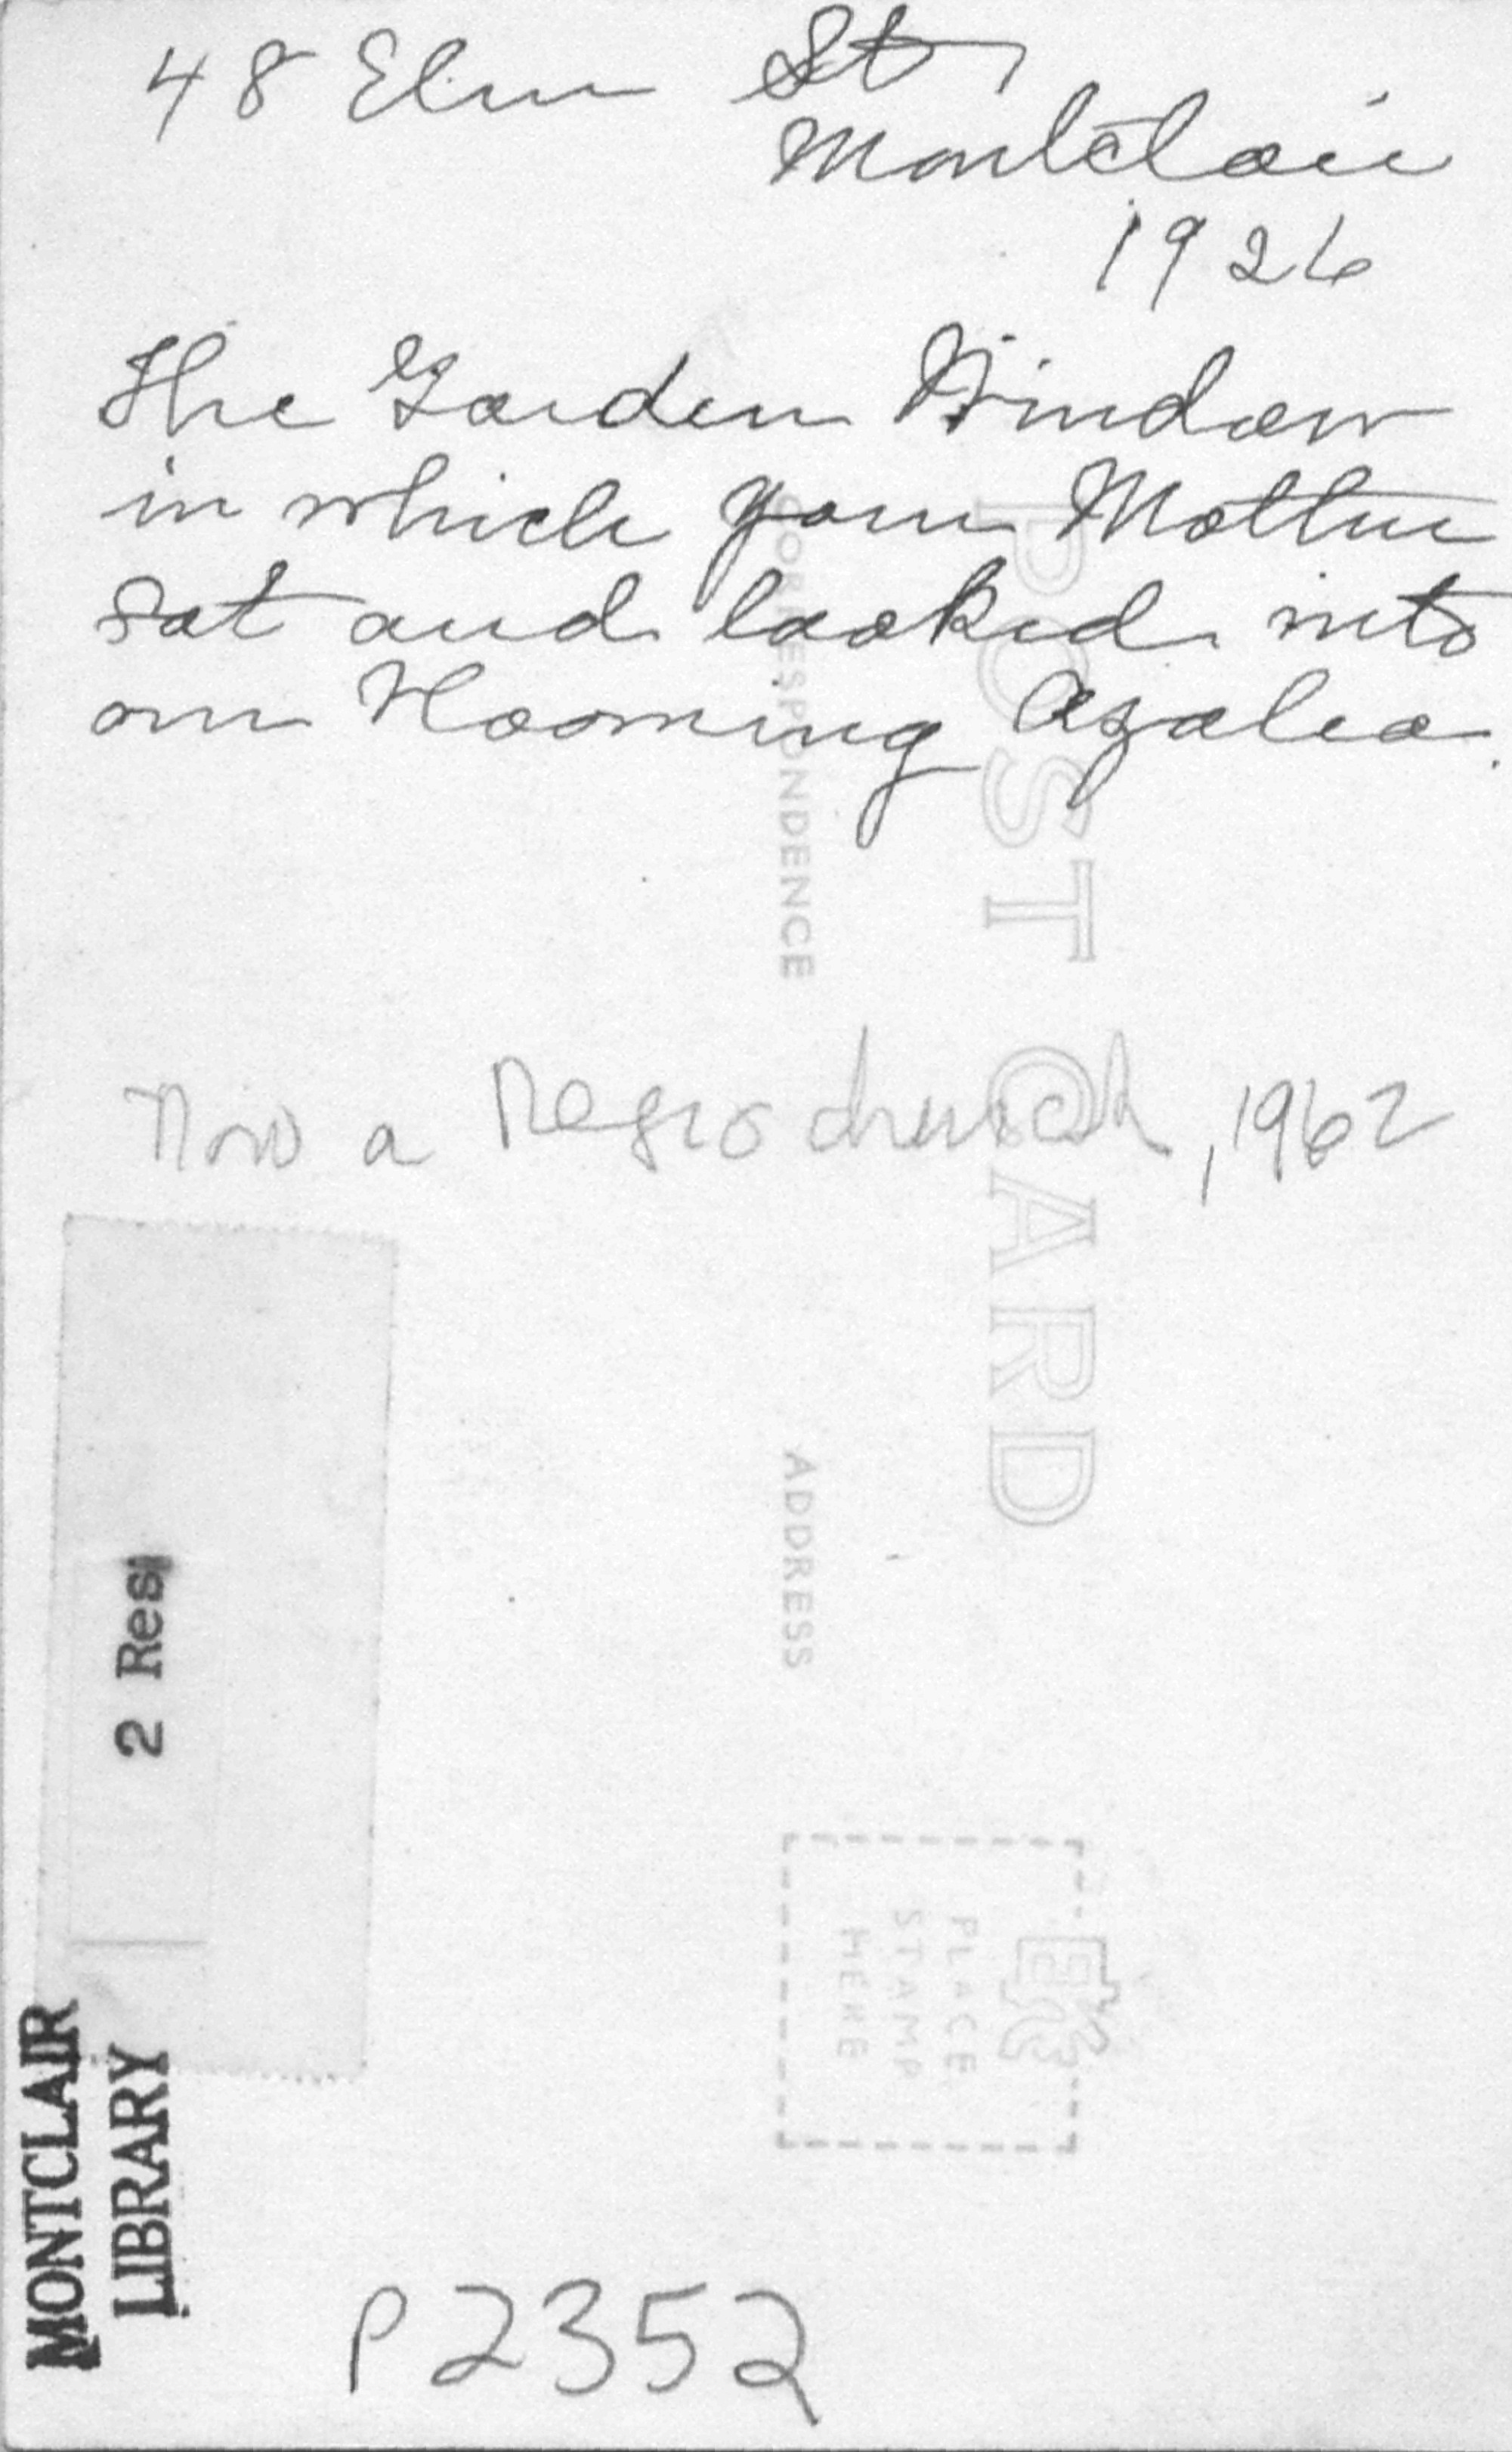 48 Elm St,
Montclair
1926
The Garden Window
in which your Mother
sat and looked into
our blooming Azalea.
CORRESPONDENCE
POST CARD
Now a Negro church, 1962
2 Resi
ADDRESS
PLACE
STAMP
HERE
MONTCLAIR
LIBRARY
P2352